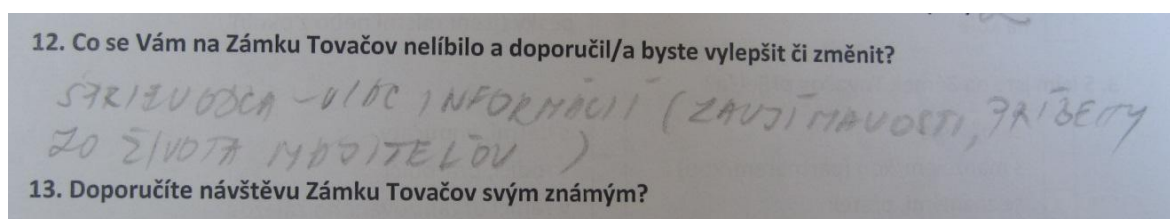 12. Co se Vám na Zámku Tovačov nelíbilo a doporučil/a byste vylepšit či změnit?
– VIAC INFORMÁCIÍ (ZAUJÍMAVOSTI, PRÍBEHY
ZO ŽIVOTA MAJITEĽOV )
13. Doporučíte návštěvu Zámku Tovačov svým známým?